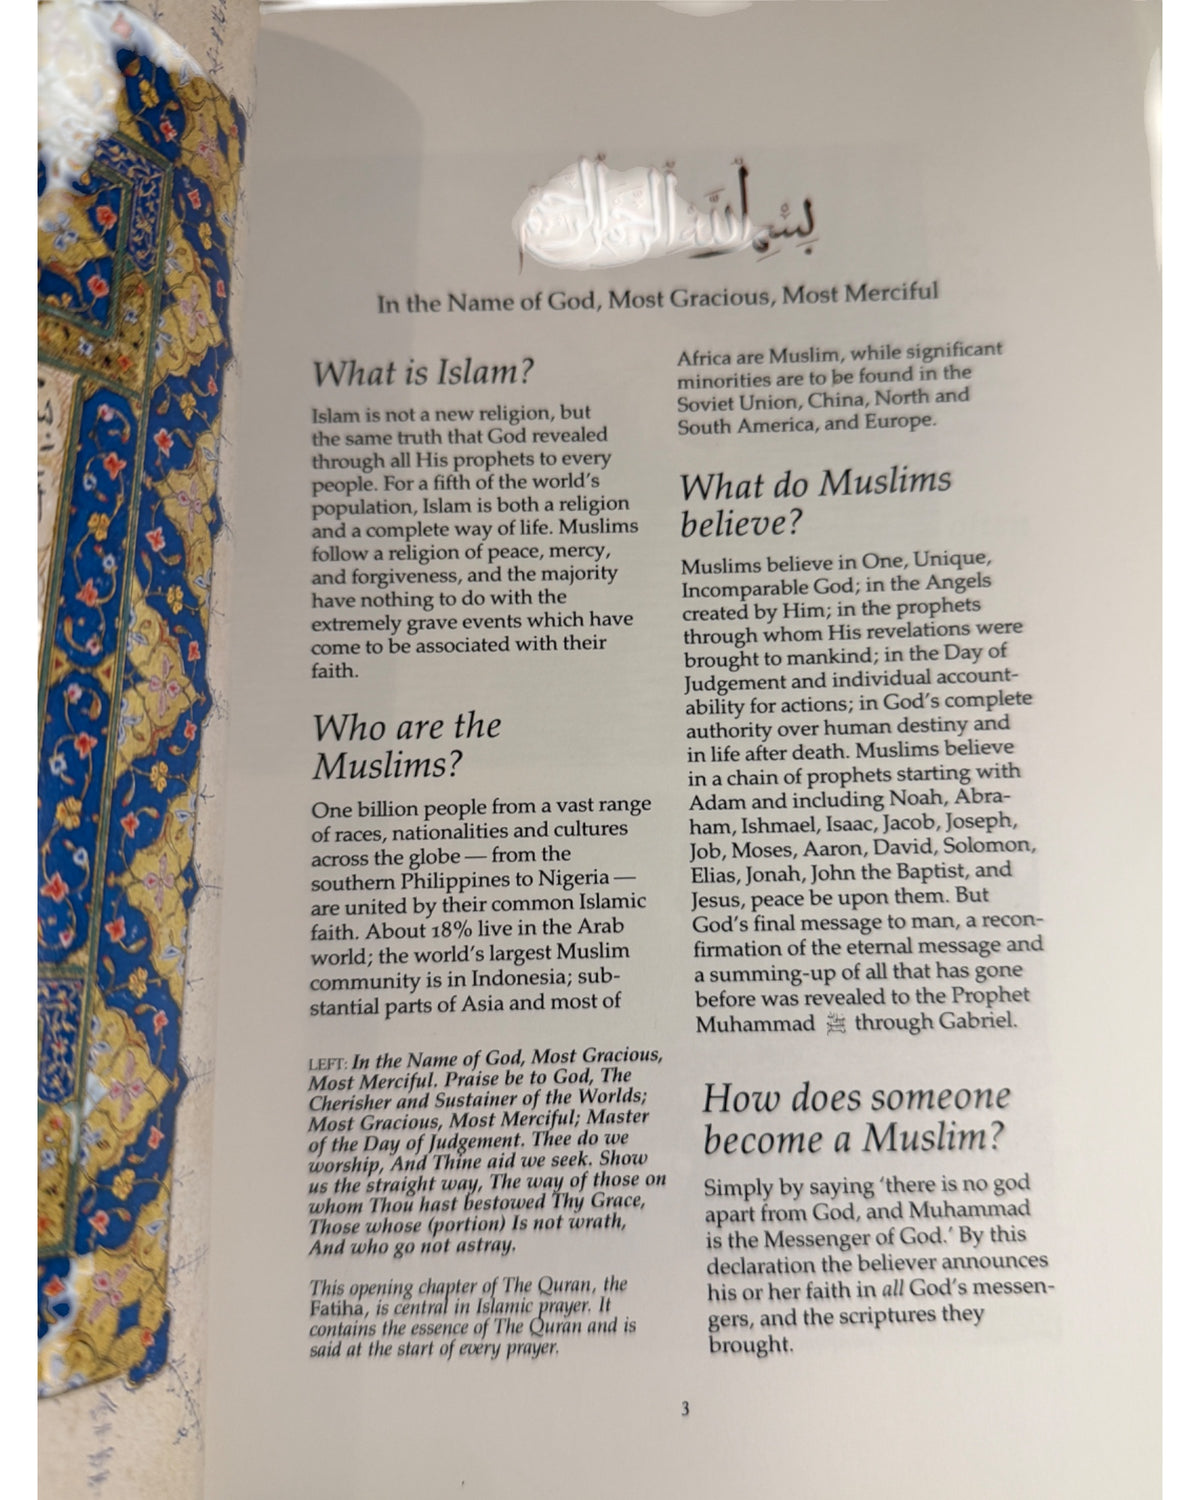 بسم الله
In the Name of God, Most Gracious, Most Merciful
What is Islam?
Islam is not a new religion, but
the same truth that God revealed
through all His prophets to every
people. For a fifth of the world's
population, Islam is both a religion
and a complete way of life. Muslims
follow a religion of peace, mercy,
and forgiveness, and the majority
have nothing to do with the
extremely grave events which have
come to be associated with their
faith.
Who are the
Muslims?
One billion people from a vast range
of races, nationalities and cultures
across the globe — from the
southern Philippines to Nigeria —
are united by their common Islamic
faith. About 18% live in the Arab
world; the world's largest Muslim
community is in Indonesia; sub-
stantial parts of Asia and most of
LEFT: In the Name of God, Most Gracious,
Most Merciful. Praise be to God, The
Cherisher and Sustainer of the Worlds;
Most Gracious, Most Merciful; Master
of the Day of Judgement. Thee do we
worship, And Thine aid we seek. Show
us the straight way, The way of those on
whom Thou hast bestowed Thy Grace,
Those whose (portion) Is not wrath,
And who go not astray.
This opening chapter of The Quran, the
Fatiha, is central in Islamic prayer. It
contains the essence of The Quran and is
said at the start of every prayer.
Africa are Muslim, while significant
minorities are to be found in the
Soviet Union, China, North and
South America, and Europe.
What do Muslims
believe?
Muslims believe in One, Unique,
Incomparable God; in the Angels
created by Him; in the prophets
through whom His revelations were
brought to mankind; in the Day of
Judgement and individual account-
ability for actions; in God's complete
authority over human destiny and
in life after death. Muslims believe
in a chain of prophets starting with
Adam and including Noah, Abra-
ham, Ishmael, Isaac, Jacob, Joseph,
Job, Moses, Aaron, David, Solomon,
Elias, Jonah, John the Baptist, and
Jesus, peace be upon them. But
God's final message to man, a recon-
firmation of the eternal message and
a summing-up of all that has gone
before was revealed to the Prophet
Muhammad ﷺ through Gabriel.
How does someone
become a Muslim?
Simply by saying 'there is no god
apart from God, and Muhammad
is the Messenger of God.' By this
declaration the believer announces
his or her faith in all God's messen-
gers, and the scriptures they
brought.
3